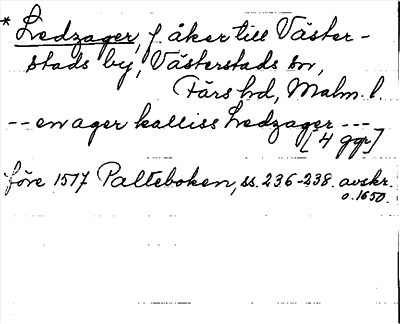 * Ledzager, f. åker till Väster-
stads by, Västerstads sn,
Färs hd, Malm. l.
-- en ager kalliss Ledzager ---
[4 ggr]
före 1517 Palteboken, ss. 236-238. avskr.
o. 1650.